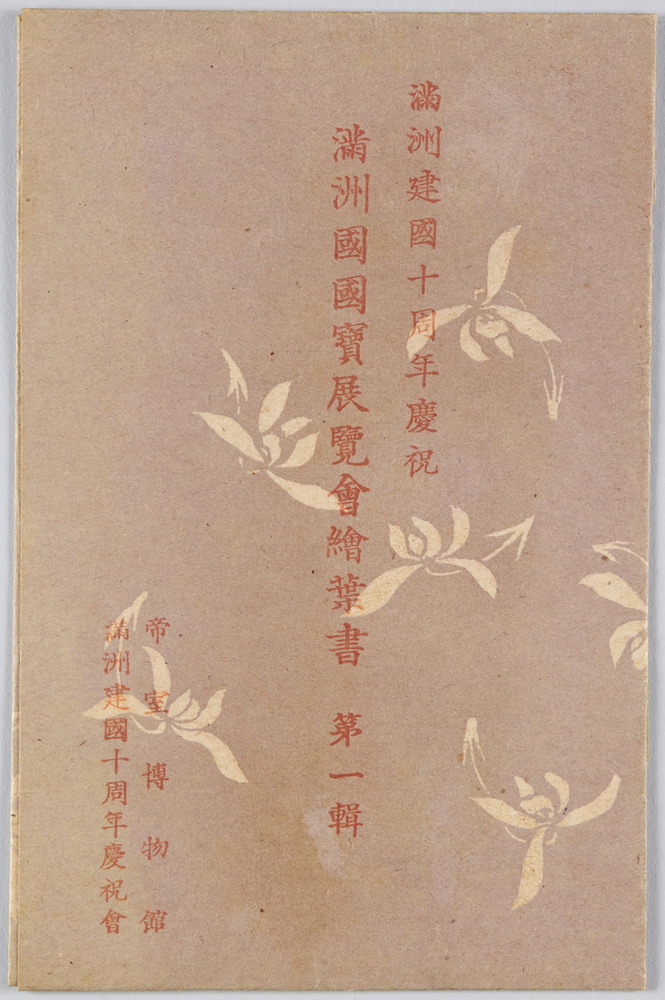 滿洲建國十周年慶祝
滿洲國國寶展覽會繪葉書　第一輯
帝室博物館
滿洲建國十周年慶祝會